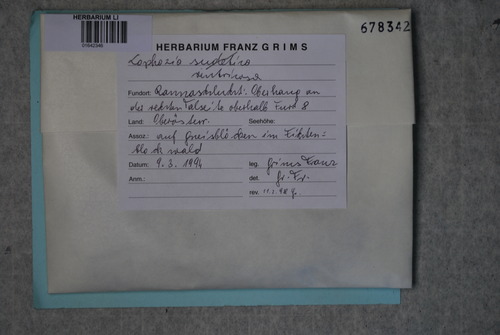 HERBARIUM LI
678342
HERBARIUM FRANZ GRIMS
Lophozia sudetica
ventricosa
Fundort: Rannaschlucht: Oberhang an
der rechten Talseite oberhalb Furt 8
Land: Oberösterr. Seehöhe:
Assoz.: auf Gneisblöcken im Fichten=
blockwald
Datum: 9.3.1994 leg. Grims Franz
Anm.: det. Gr. Fr.
rev. 11.2.98 g.